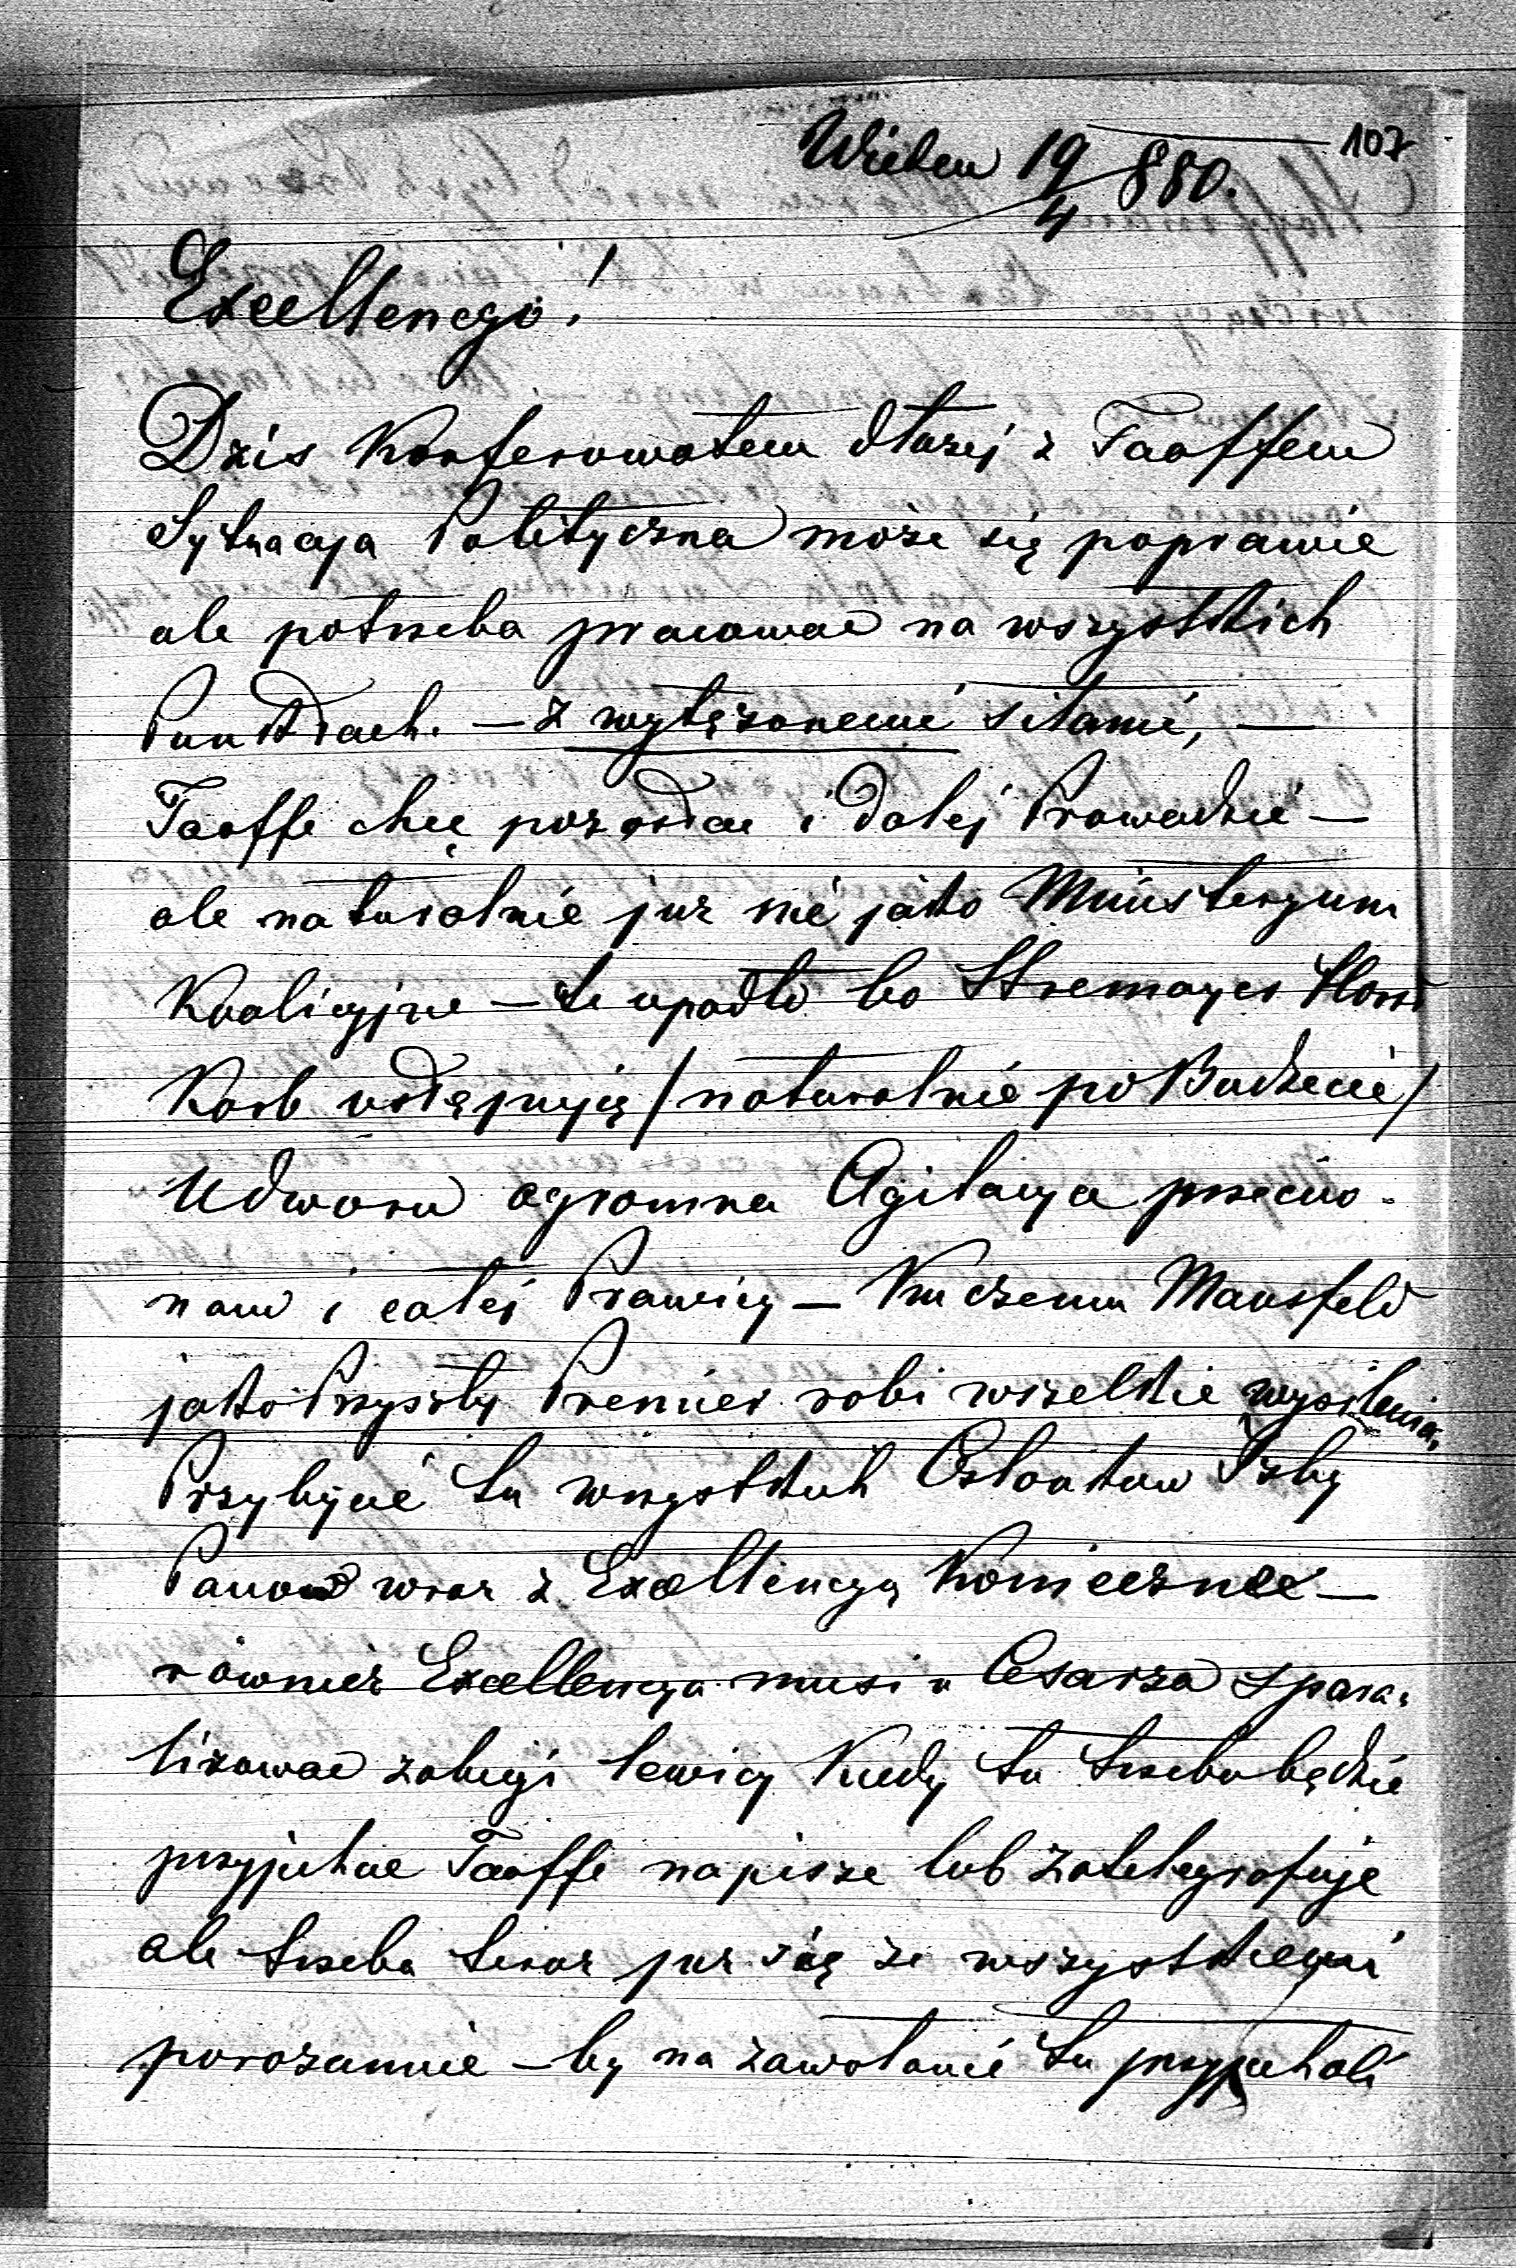 107
Wiedeń 19/4 880.
Excellencyo!
Dziś Konferowałem dłużej z Taaffem
Sytuacya Polityczna może się poprawić
ale potrzeba pracować na wszystkich
Punktach. — z wytężonemi siłami, —
Taaffe chce pozostać i dalej Prowadzić —
ale naturalnie już nie jako Ministeryum
Koalicyjne — te upadło bo Stremayer Horst
Korb ustępują / naturalnie po Budżecie /
U dworu ogromna Agitacya przeciwo-
nam i całej Prawicy — Ku czemu Mansfeld
jako Przyszły Premier robi wszelkie wysilenia,
Przybycie tu wszystkich Członków Izby
Panów wraz z Excellencyą Konieczne —
również Excellencya musi u Cesarza spara-
liżować zabiegi lewicy Kiedy tu trzeba będzie
przyjechać Taaffe napisze lub zatelegrafuje
ale trzeba teraz już się ze wszystkiemi
porozumieć — by na zawołanie tu przyjechali